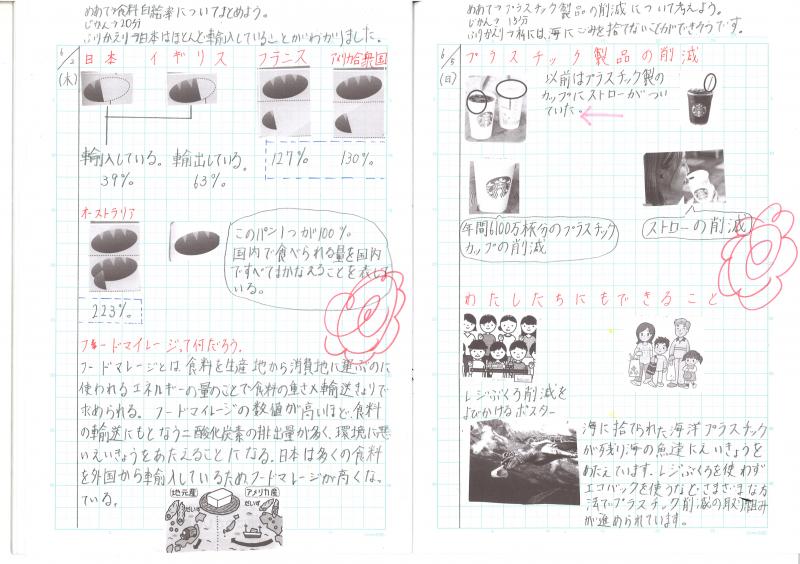 めあて→食料自給率についてまとめよう。
じかん→20分
ふりかえり→日本はほとんど輸入していることがわかりました。
6/2
(木)
日本 イギリス フラニス アメリカ合衆国
輸入している。 輸出している。
39% 63%
127% 130%
オーストラリア
このパン1つが100%
国内で食べられる量を国内
ですべてまかなえることを表して
いる。
223%
フードマイレージって何だろう.
フードマレージとは食料を生産地から消費地に運ぶのに
使われるエネルギーの量のことで食料の重さ×輸送きょりで
求められる。フードマイレージの数値が高いほど、食料
の輸送にもとなう二酸化炭素の排出量が多く、環境に悪
いえいきょうをあたえることになる。日本は多くの食料
を外国から輸入しているためフードマレージが高くなっ
ている。
地元産 アメリカ産
だいず だいず
めあて→プラスチック製品の削減について考えよう。
じかん→15分
ふりかえり→私には、海にごみを捨てないことができそうです。
6/5
(日)
プラスチック製品の削減
以前はプラスチック製の
カップにストローがつい
ていた。
年間6100万杯分のプラスチック
カップの削減
ストローの削減
わたしたちにもできること
レジぶくろ削減を
よびかけるポスター
海に捨てられた海洋プラスチック
が残り海の魚達にえいきょうを
あたえています。レジぶくろを使わず
エコバックを使うなど、さまざまな方
法でプラスチック削減の取り組み
が進められています。